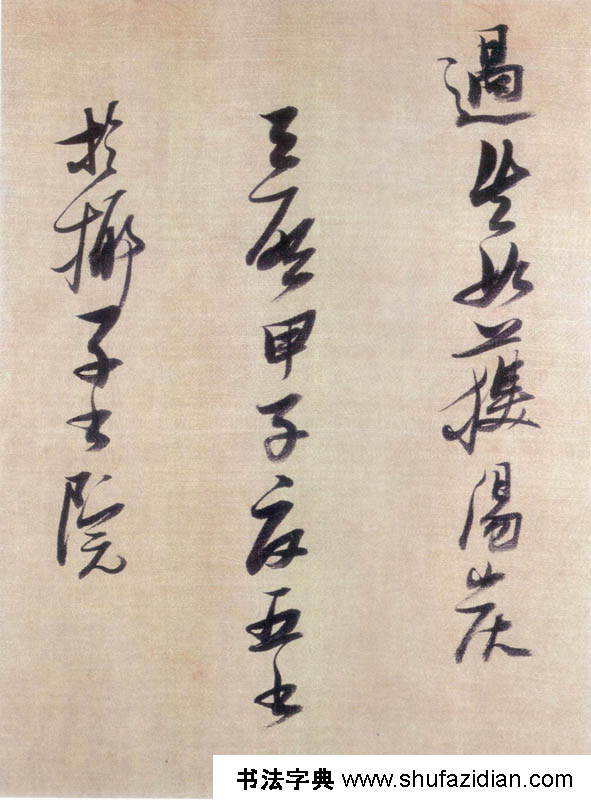 過失如湯炭
天啓甲子夏五書
於子書院
书法字典 www.shufazidian.com